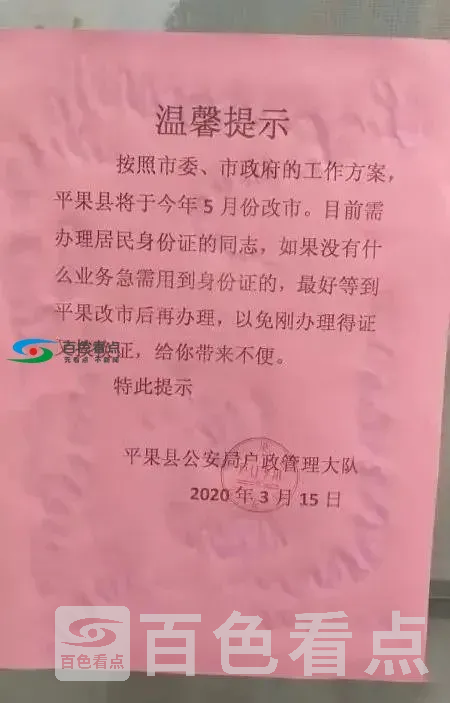 温馨提示
按照市委、市政府的工作方案，
平果县将于今年5月份改市。目前需
办理居民身份证的同志，如果没有什
么业务急需用到身份证的，最好等到
平果改市后再办理，以免刚办理得证
百色看点
无看点 不新闻
证，给你带来不便。
特此提示
平果县公安局户政管理大队
2020年3月15日
百色看点
百色看点